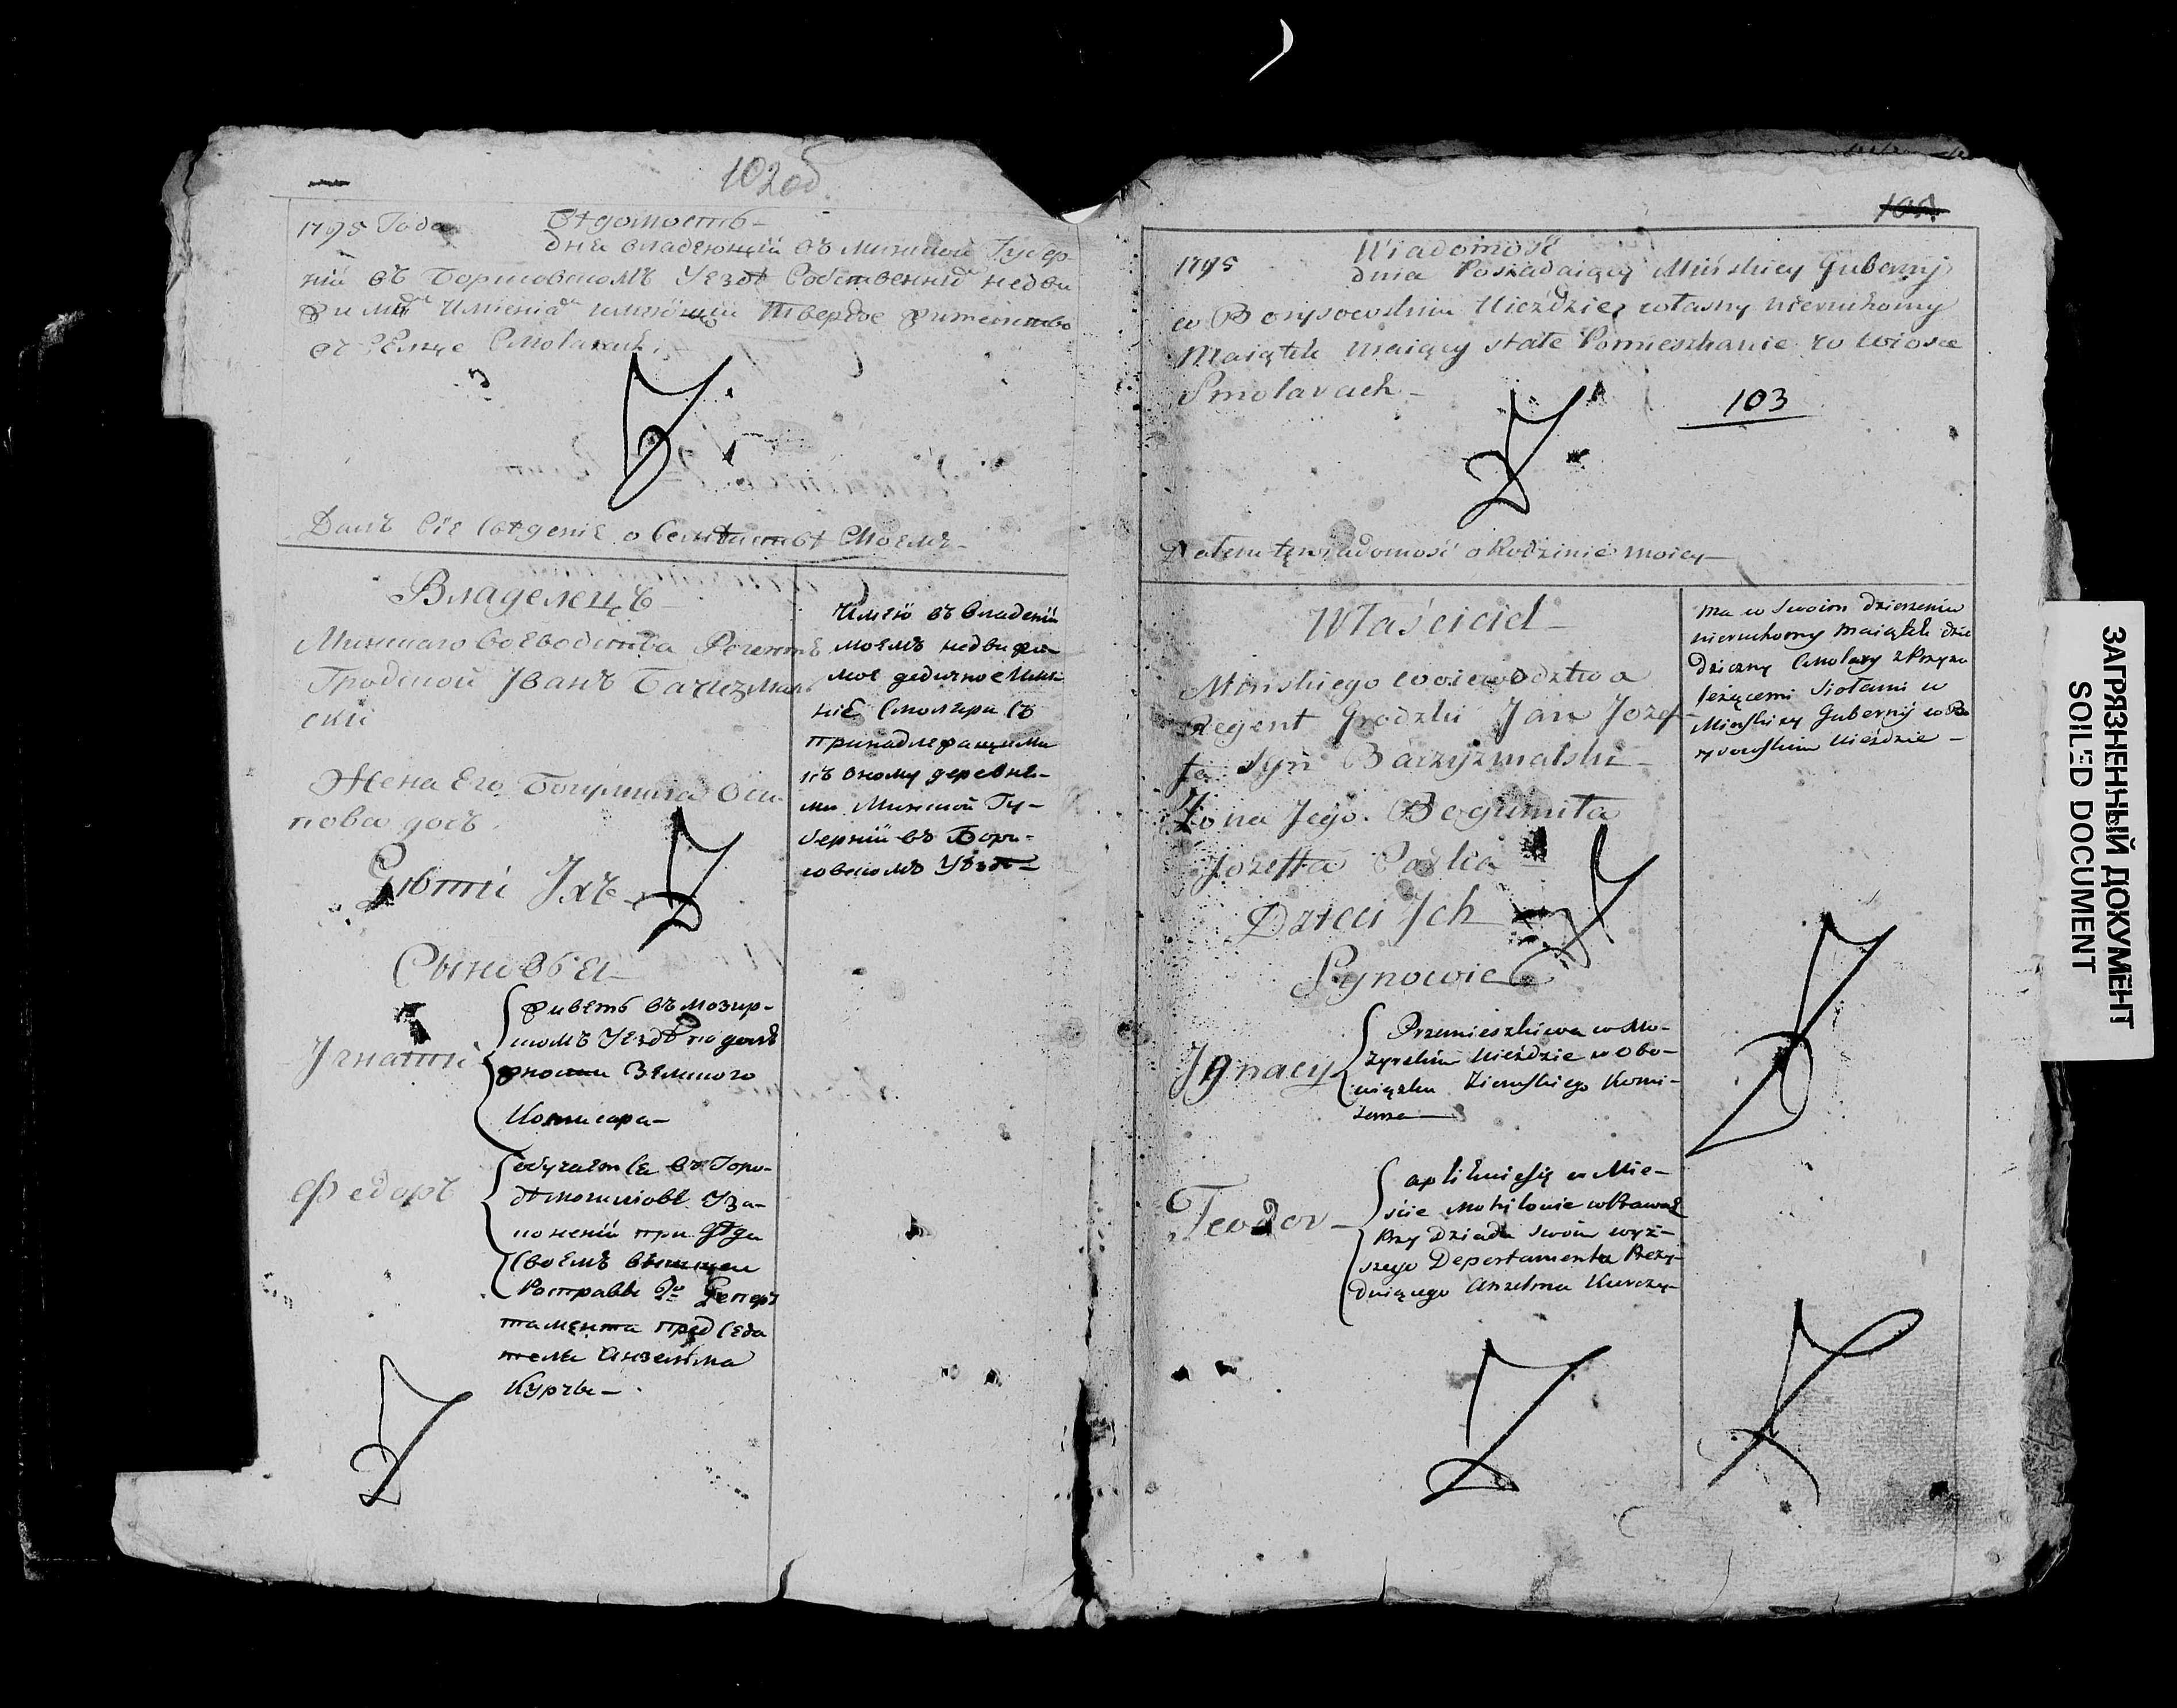 102об
1795 Года Вѣдомость
дня владеющій въ Минской Губер
ніи въ Борисовскомъ Уездѣ Собственнаго недви
жимаго имѣнія имѣющій Твердое жительство
въ Селце Смоларах
Далъ Сіе Свѣденіе о Семействѣ Моемъ
Владелецъ
Минскаго Воеводства Регентъ
Гродской Іванъ Бачизмал
ски
Жена Его Богумила Оси
пова дочъ
Дѣти Ихъ
Сыновья
Игнатий
живетъ въ Мозир-
скомъ Уездѣ по долж
жности Земского
Комисара
Федоръ
обучается въ Горо-
дѣ Могилiовѣ У за-
коненій при Дѣду
Своемъ вышшеи
Росправы 2го Депар
тамента председа
теля Анзелма
Курчи
Имѣю въ владеніи
моемъ недвижи-
мое дедичное Имѣ
ніе Смоляри Съ
принадлежащими
къ оному деревня-
ми Минской Гу-
берніи въ Бори-
совскомъ Уѣздѣ
1795 Wiadomość
dnia Posiadaiący Mińskiey Gubernij
w Borysowskim Uieździe własny nieruchomy
Maiątek maiący stałe Pomieszkanie w wiosce
Smolarach
103
Dałem tę wiadomość o Rodzinie moiey
Właściciel
Minskiego woiewodztwa
Regent Grodzki Jan Jozef
fa Syn Baczyzmalski
Żona Jego Bogumiła
Jozeffa Corka
Dzieci Ich
Synowie
Ignacy
Przemieszkiwa w Mo-
zyrskim Uieździe w Obo-
wiązku Ziemskiego Komi-
sarza
Teodor
aplikuie się w Mie-
scie Mohilowie w Prawie
Przy Dziadu swoim wyż-
szego Departamentu Prezy-
duiącego Anzelma Kurczy
Ma w swoim dzierzeniu
nieruchomy maiątek dzie
dziczny Smolary z Przyna
leżącemi Siołami w
Minskiey Gubernij w Bo
rysowskim Uieździe
ЗАГРЯЗНЕННЫЙ ДОКУМЕНТ
SOILED DOCUMENT